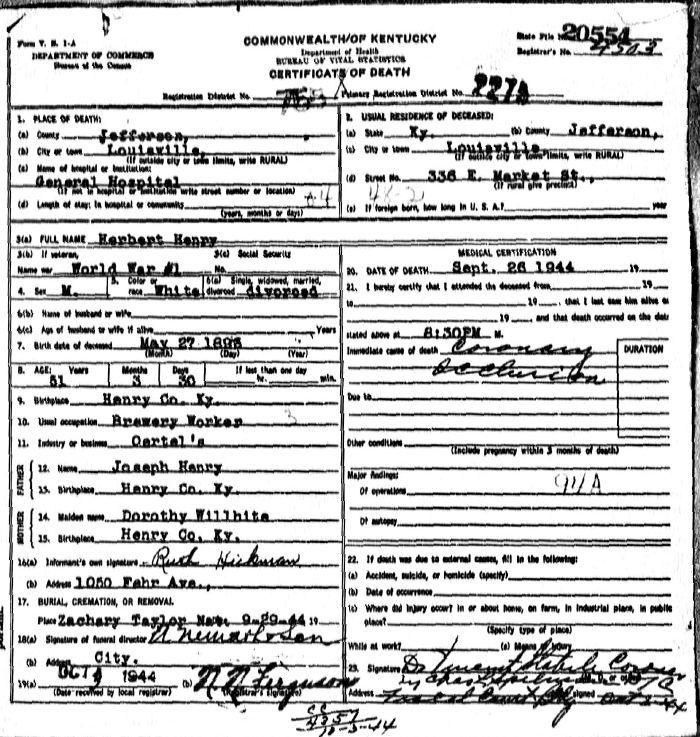 Form V. S. 1-A
DEPARTMENT OF COMMERCE
Bureau of the Census
COMMONWEALTH OF KENTUCKY
Department of Health
BUREAU OF VITAL STATISTICS
CERTIFICATE OF DEATH
State File No. 20554
Registrar's No. 4503
Registration District No. 755 Primary Registration District No. 2275
1. PLACE OF DEATH:
(a) County Jefferson,
(b) City or town Louisville,
(If outside city or town limits, write RURAL)
(c) Name of hospital or institution:
General Hospital
(If not in hospital or institution write street number or location)
(d) Length of stay: In hospital or community
(years, months or days)
2. USUAL RESIDENCE OF DECEASED:
(a) State Ky. (b) County Jefferson,
(c) City or town Louisville,
(If outside city or town limits, write RURAL)
(d) Street No. 336 E. Market St.,
(If rural give precinct)
(e) If foreign born, how long in U. S. A.? year
3(a) FULL NAME Herbert Henry
3(b) If veteran, 3(c) Social Security
Name war World War #1 No.
4. Sex M. 5. Color or race White 6(a) Single, widowed, married, divorced divorced
6(b) Name of husband or wife
6(c) Age of husband or wife if alive Years
7. Birth date of deceased May 27 1893
(Month) (Day) (Year)
8. AGE: Years Months Days If less than one day
51 3 30 hr. min.
9. Birthplace Henry Co. Ky.
10. Usual occupation Brewery Worker 3
11. Industry or business Oertel's
FATHER
12. Name Joseph Henry
13. Birthplace Henry Co. Ky.
MOTHER
14. Maiden name Dorothy Willhite
15. Birthplace Henry Co. Ky.
16(a) Informant's own signature Ruth Hickman
(b) Address 1050 Fehr Ave.,
17. BURIAL, CREMATION, OR REMOVAL
Place Zachary Taylor Nat. 9-29-44 19
18(a) Signature of funeral director
(b) Address City.
19(a) OCT 1944 (b) N N Ferguson
(Date received by local registrar) (Registrar's signature)
MEDICAL CERTIFICATION
20. DATE OF DEATH Sept. 26 1944 19
21. I hereby certify that I attended the deceased from 19
to 19, that I last saw him alive on
19 and that death occurred on the date
stated above at 8:30PM M.
Immediate cause of death Coronary
Occlusion
DURATION
Due to
Other conditions
(Include pregnancy within 3 months of death)
Major findings:
Of operations 94A
Of autopsy
22. If death was due to external causes, fill in the following:
(a) Accident, suicide, or homicide (specify)
(b) Date of occurrence
(c) Where did injury occur in or about home, on farm, in industrial place, in public
place?
(Specify type of place)
While at work? (e) Means of injury
23. Signature Coroner
Address signed